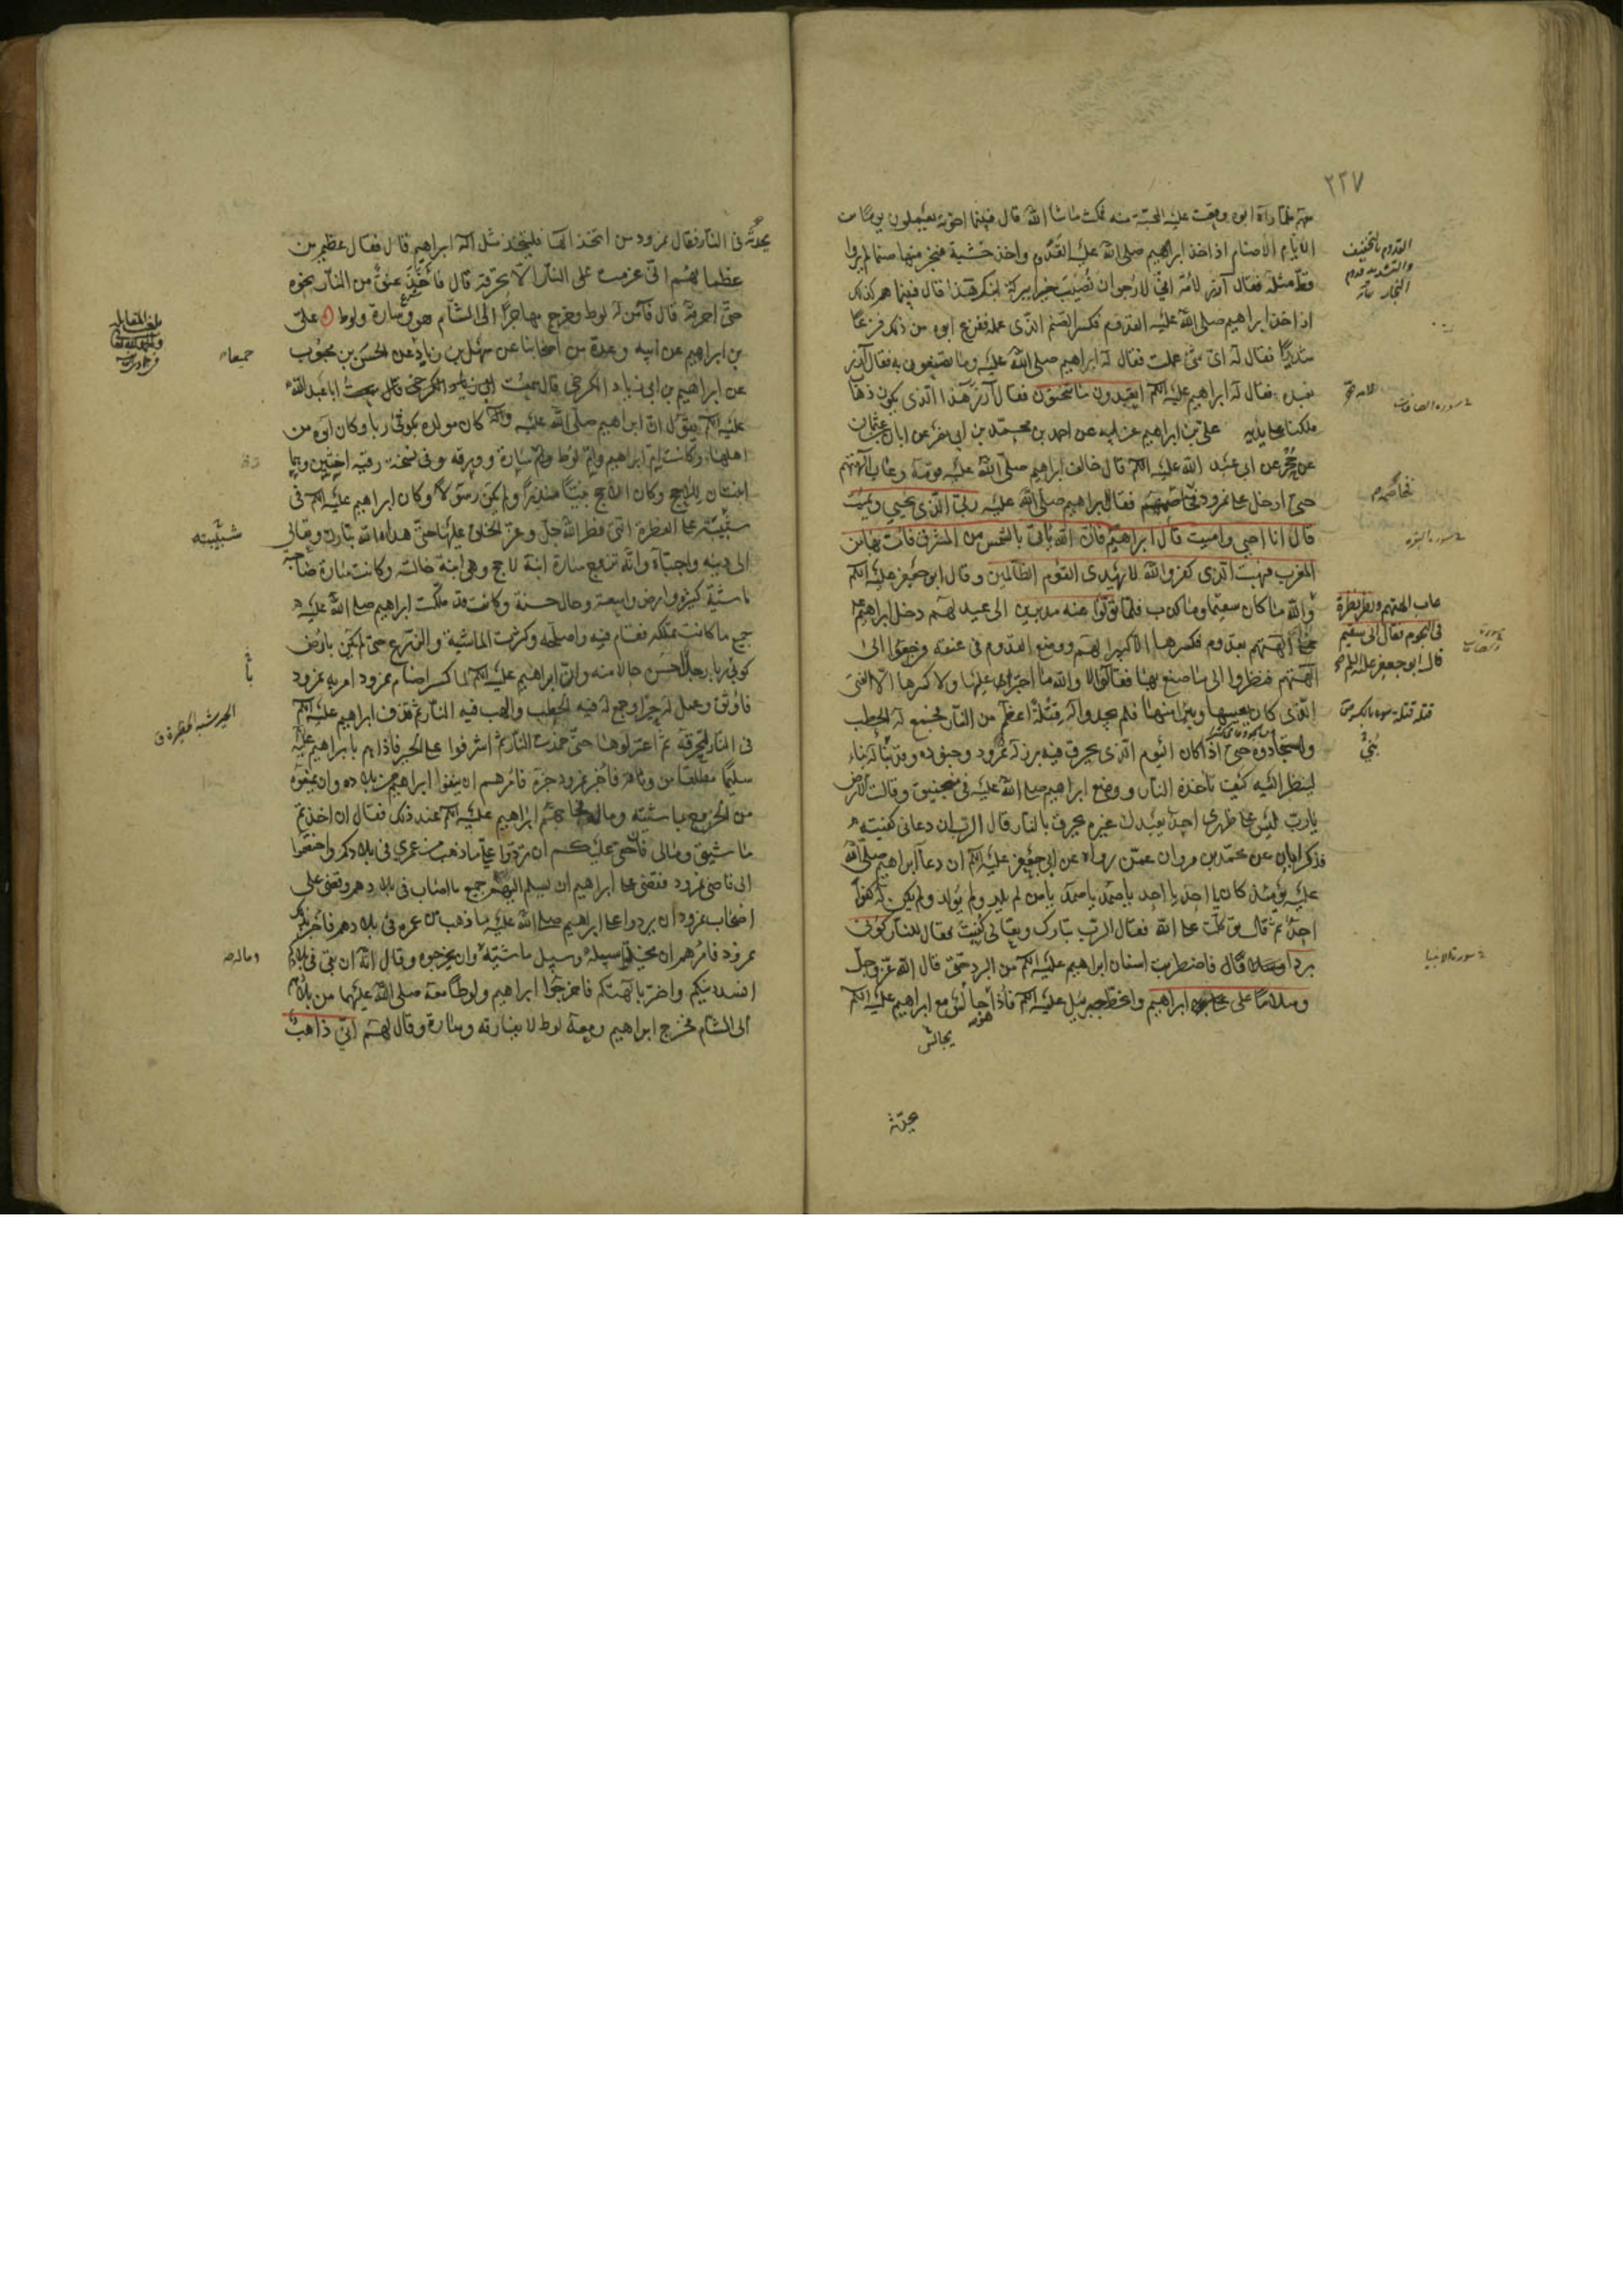 ٢٢٧
منه فلما رآه ابوه وقعت عليه المحبة منه فمكث ما شا الله قال فبينما اخوته يعملون يوما من
الايام الاصنام اذا اخذ ابراهيم صلى الله عليه القدوم واخذ خشبة فنجر منها صنما لم يروا
قط مثله فقال آزر لامه اني لارجو ان نصيب خيرا ببركة ابنك هذا قال فبينما هم كذلك
اذا اخذ ابراهيم صلى الله عليه القدوم فكسر الصنم الذى عمله ففزع ابوه من ذلك فزعا
شديدا فقال له اى شئ عملت فقال له ابراهيم صلى الله عليه وما تصنعون به فقال آزر
نعبده فقال له ابراهيم عليه السلم اتعبدون ما تنحتون فقال آزر هذا الذى يكون ذهاب
ملكنا على يديه علي بن ابراهيم عن ابيه عن احمد بن محمد بن ابي نصر عن ابان بن عثمان
عن حجر عن ابى عبد الله عليه السلم قال خالف ابراهيم صلى الله عليه قومه وعاب آلهتهم
حتى ادخل على نمرود فخاصمهم فقال ابراهيم صلى الله عليه ربي الذى يحيي ويميت
قال انا احيي واميت قال ابراهيم فان الله يأتى بالشمس من المشرق فأت بها من
المغرب فبهت الذى كفر والله لا يهدى القوم الظالمين وقال ابو جعفر عليه السلم
والله ما كان سقيما وما كذب فلما تولوا عنه مدبرين الى عيد لهم دخل ابراهيم
الى آلهتهم بقدوم فكسرها الا كبيرا لهم ووضع القدوم فى عنقه فرجعوا الى
آلهتهم فنظروا الى ما صنع بها فقالوا لا والله ما اجترأ عليها ولا كسرها الا الفتى
الذى كان يعيبها ويبرأ منها فلم يجدوا له قتلة اعظم من النار فجمع له الحطب
واستجادوه حتى اذا كان اليوم الذى يحرق فيه برز له نمرود وجنوده وقد بنى له بناء
لينظر اليه كيف تأخذه النار ووضع ابراهيم صلى الله عليه فى منجنيق وقالت الارض
يا رب ليس على ظهرى احد يعبدك غيره يحرق بالنار قال الرب ان دعانى كفيته
فذكر ابان عن محمد بن مروان عمن رواه عن ابى جعفر عليه السلم ان دعا ابراهيم صلى الله
عليه يومئذ كان يا احد يا احد يا صمد يا صمد يا من لم يلد ولم يولد ولم يكن له كفوا
احد ثم قال توكلت على الله فقال الرب تبارك وتعالى كفيت فقال للنار كونى
بردا قال فاضطربت اسنان ابراهيم عليه السلم من البرد حتى قال الله عز وجل
وسلاما على ابراهيم وانحط جبرئيل عليه السلم فاذا جالس مع ابراهيم عليه السلم
هو
يجالس
القدوم بالتخفيف
والتشديد قدوم
النجار
سورة الصافات
فخاصمهم
سورة البقره
عاب آلهتهم ونظر نظرة
فى النجوم فقال انى سقيم
قال ابو جعفر عليه السلم
بنى
سورة الانبيا
يحدثه فى النار فقال نمرود من اتخذ الها فليتخذ مثل اله ابراهيم قال فقال عظيم من
عظمائهم انى عزمت على النار الا تحرقه قال فأخذ عنق من النار نحوه
حتى احرقه قال فآمن له لوط وخرج مهاجرا الى الشام هو وسارة ولوط على
بن ابراهيم عن ابيه وعدة من اصحابنا عن سهل بن زياد عن الحسن بن محبوب
عن ابراهيم بن ابى زياد الكرخى قال سمعت ابا عبد الله
عليه السلم يقول ان ابراهيم صلى الله عليه وآله كان مولده بكوثى ربا وكان ابوه من
اهلها وكانت ام ابراهيم وام لوط سارة وورقه وفى نسخة رقيه اختين وهما
ابنتان للاحج وكان اللاحج نبيا منذرا ولم يكن رسولا وكان ابراهيم عليه السلم فى
شبيبته على الفطرة التى فطر الله جل وعز الخلق عليها حتى هداه الله تبارك وتعالى
الى دينه واجتباه وانه تزوج سارة ابنة لاحج وهى ابنة خالته وكانت سارة صاحبة
ماشية كثيرة وارض واسعة وحال حسنة وكانت قد ملكت ابراهيم صلى الله عليه
جميع ما كانت تملكه فقام فيه واصلحه وكثرت الماشية والزرع حتى لم يكن بارض
كوثى ربا رجل احسن حالا منه وان ابراهيم عليه السلم لما كسر اصنام نمرود امر به نمرود
فاوثق وعمل له حيرا وجمع له فيه الحطب والهب فيه النار ثم قذف ابراهيم عليه السلم
فى النار لتحرقه ثم اعتزلوها حتى خمدت النار ثم اشرفوا على الحير فاذا هم بابراهيم عليه
سليما مطلقا من وثاقه فأخبر نمرود خبره فامرهم ان ينفوا ابراهيم من بلاده وان يمنعوه
من الخروج بماشيته وماله فحاجهم ابراهيم عليه السلم عند ذلك فقال ان اخذتم
ماشيتى ومالى فان حقى عليكم ان تردوا على ما ذهب من عمرى فى بلادكم واختصموا
الى قاضى نمرود فقضى على ابراهيم ان يسلم اليهم جميع ما اصاب فى بلادهم وقضى على
اصحاب نمرود ان يردوا على ابراهيم صلى الله عليه ما ذهب من عمره فى بلادهم فأخبر بذلك
نمرود فامرهم ان يخلوا سبيله وسبيل ماشيته وان يخرجوه وقال انه ان بقى فى بلادكم
افسد دينكم واضر بآلهتكم فاخرجوا ابراهيم ولوطا معه صلى الله عليهما من بلادهم
الى الشام فخرج ابراهيم ومعه لوط لا يفارقه وسارة وقال لهم انى ذاهب
جميعا
شبيبته
وماله